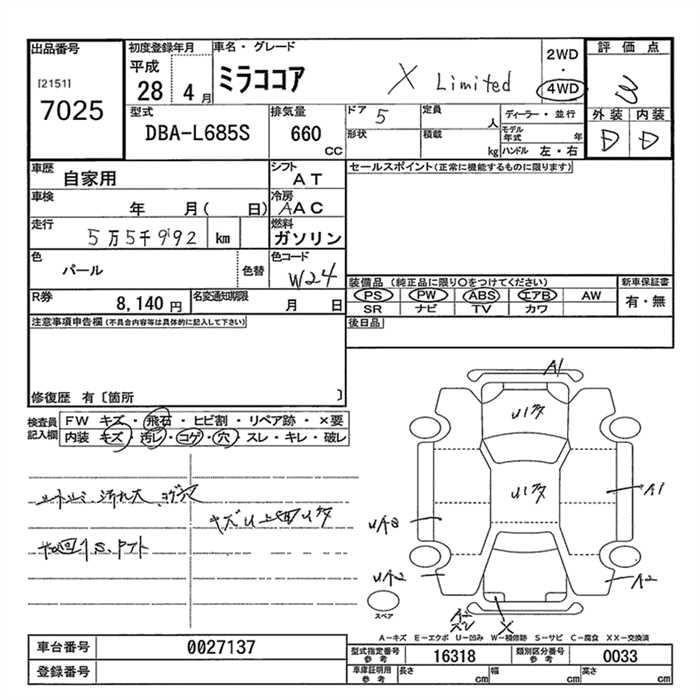 出品番号
[2151]
7025
初度登録年月
平成
28 4 月
車名・グレード
ミラココア X Limited
2WD
・
4WD
評価点
3
外装 内装
D D
型式
DBA-L685S
排気量
660
CC
ドア 5
定員
人
形状
積載
kg
ディーラー・並行
モデル年式
年
ハンドル 左・右
車歴
自家用
シフト
AT
車検
年 月( 日)
冷房
AAC
走行
5万5千992 km
燃料
ガソリン
色
パール
色替
色コード
W24
R券
8,140 円
名変通知期限
月 日
セールスポイント(正常に機能するものに限ります)
装備品 (純正品に限り○をつけてください)
PS PW ABS エアB AW
SR ナビ TV カワ
新車保証書
有・無
後日品
注意事項申告欄(不具合内容等は具体的に記入して下さい)
修復歴 有〔箇所 〕
検査員
記入欄
FW キズ・飛石・ヒビ割・リペア跡・×要
内装 キズ・汚レ・コゲ・穴・スレ・キレ・破レ
A1
A1
A2
UA2
X
スペア
A-キズ E-エクボ U-凹み W-補修跡 S-サビ C-腐食 XX-交換済
車台番号
0027137
登録番号
型式指定番号
参考
16318
類別区分番号
参考
0033
車庫証明用
参考
長さ cm
幅 cm
高さ cm